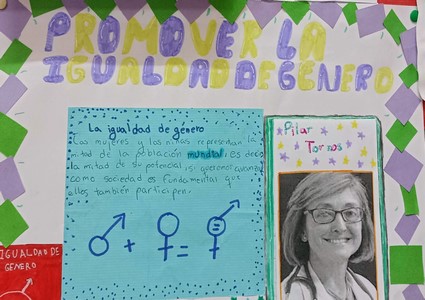 PROMOVER LA
IGUALDAD DE GÉNERO
La igualdad de género
Las mujeres y las niñas representan la
mitad de la población mundial, es decir
la mitad de su potencial, si queremos avanzar
como sociedad es fundamental que
ellas también participen.
Pilar
Tornos
IGUALDAD DE
GÉNERO